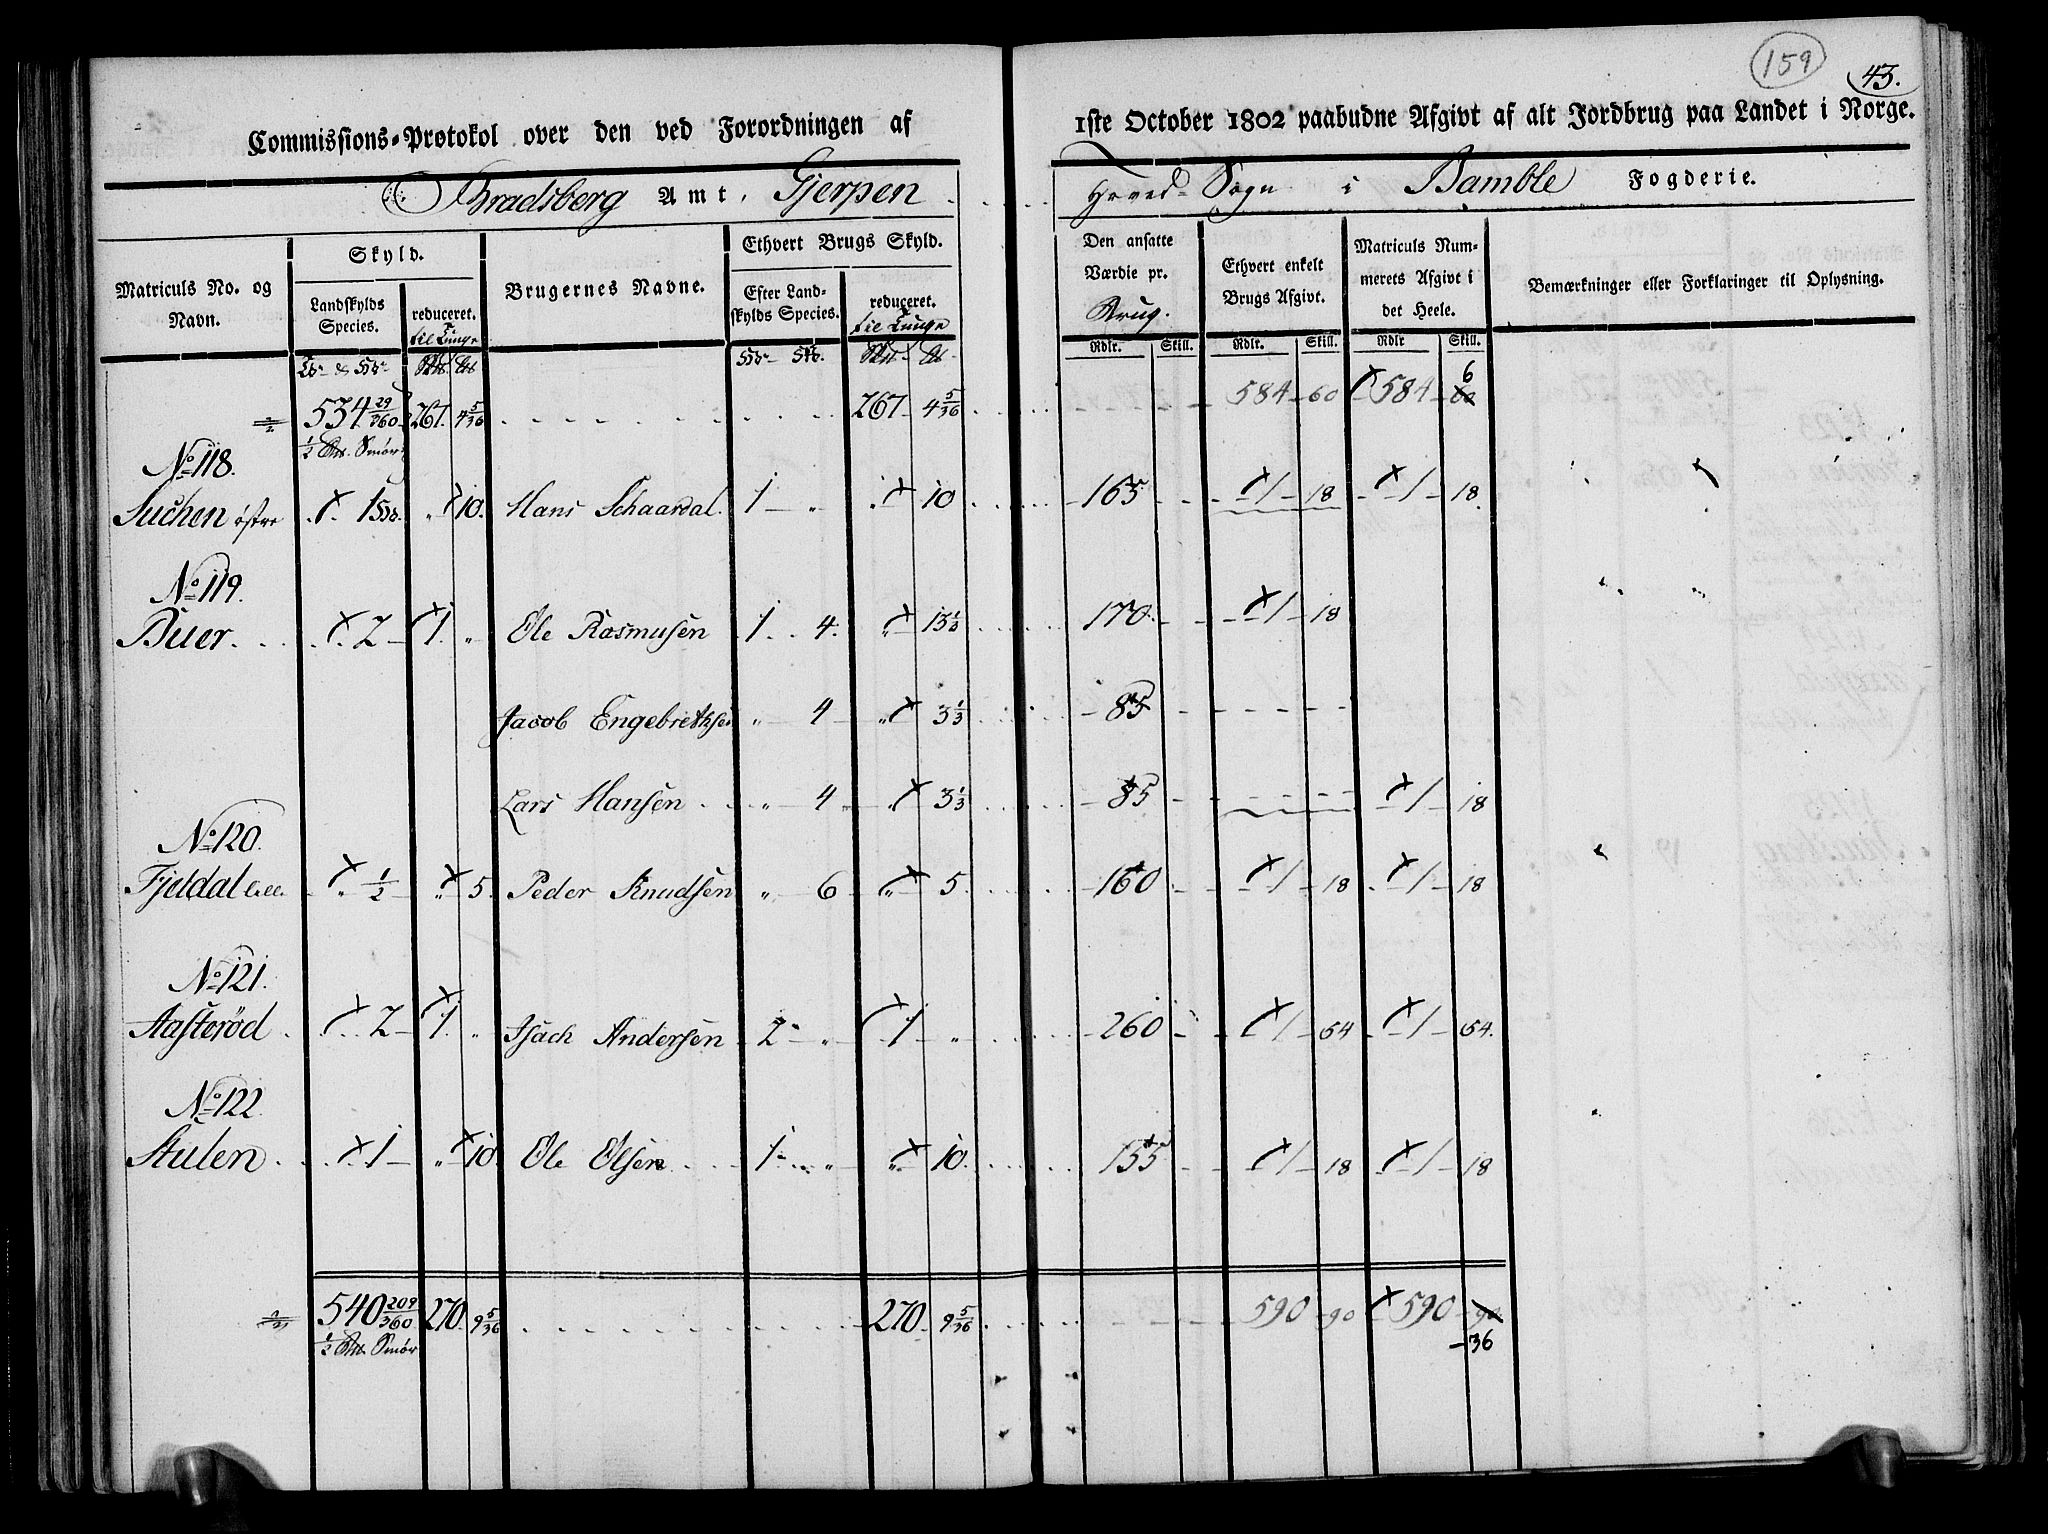 159
43.
Commissions-Protokol over den ved Forordningen af 1ste October 1802 paabudne Afgivt af alt Jordbrug paa Landet i Norge.
Bradsberg Amt, Gjerpen Hoved-Sogn i Bamble Fogderie.
Matriculs No. og Navn.
Skyld.
Landskylds Species.
reduceret. til Tunge
Brugernes Navne.
Ethvert Brugs Skyld.
Efter Landskylds Species.
reduceret. til Tunge
Den ansatte Værdie pr. Brug.
Ethvert enkelt Brugs Afgivt.
Matriculs Nummerets Afgivt i det Heele.
Bemærkninger eller Forklaringer til Oplysning.
Rdlr. Skill. Rdlr. Skill. Rdlr Skill.
534 29/360 267. 4 5/36 267 4 5/36 584 60 584 6
1/2 Smør
No 118.
Suchen østre 1 10. Hans Schaardal. 1 " " 10 165 1 18 1 18.
No 119.
Buer. 2 1. " Ole Rasmusen 1 4. " 13 1/3 170. 1 18
Jacob Engebrethsen " 4 " 3 1/3 85
Lars Hansen " 4 " 3 1/3 85 1 18
No 120.
Fjeldal lille 1/2 " 5. Peder Knudsen " 6 " 5. 160 1 18 1 18
No 121.
Aasterød 2 1. " Isach Andersen 2 " 1 " 260 1 54 1 54.
No 122.
Stulen 1 " 10. Ole Olsen 1 " " 10. 155 1 18 1 18
540 209/360 270. 9 5/36 270 9 5/36 590 90 590 90
1/2 Smør 36